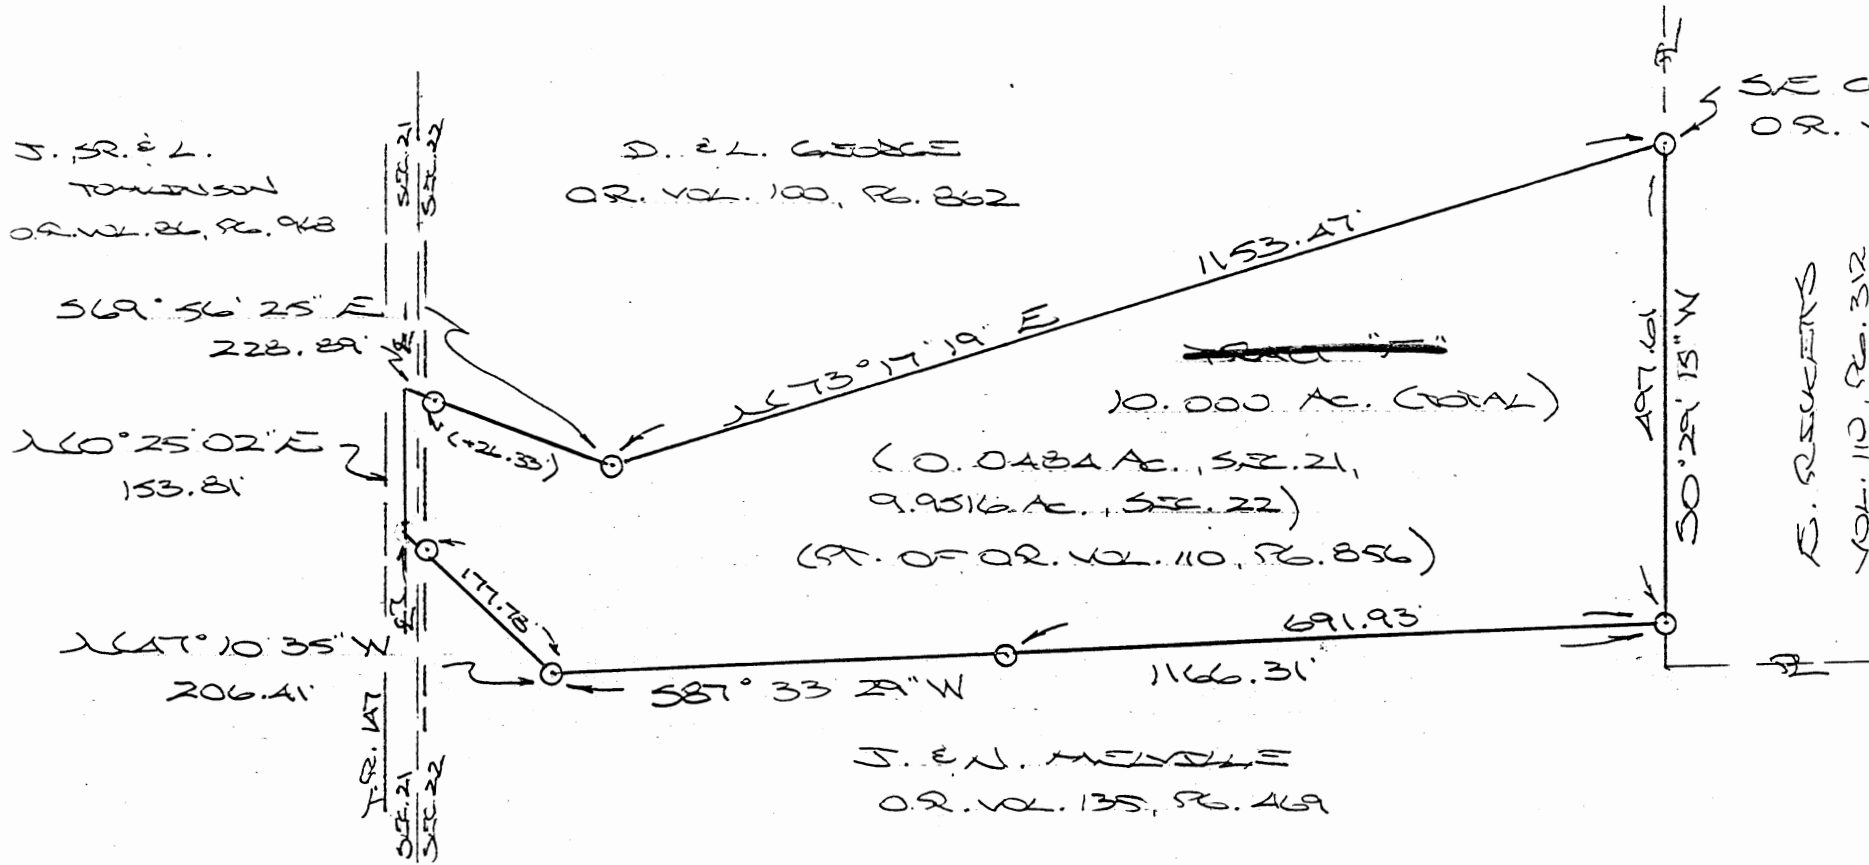 S.E. C
O.R. V
J. SR. & L.
TOMLINSON
O.R. VOL. 86, PG. 968
SEC. 21
SEC. 22
D. & L. GEORGE
O.R. VOL. 100, PG. 862
S69° 56' 25" E
228.89'
(+26.33')
N73° 17' 19" E
1153.47'
10.000 AC. (TOTAL)
(0.0484 AC., SEC. 21,
9.9516 AC., SEC. 22)
(PT. OF O.R. VOL. 110, PG. 856)
497.61'
S0° 29' 15" W
VOL. 110, PG. 312
N0° 25' 02" E
153.81'
177.78'
N47° 10' 35" W
206.41'
S87° 33' 29" W
691.93'
1166.31'
T.R. 147
SEC. 21
SEC. 22
J. & N. MELVILLE
O.R. VOL. 135, PG. 469